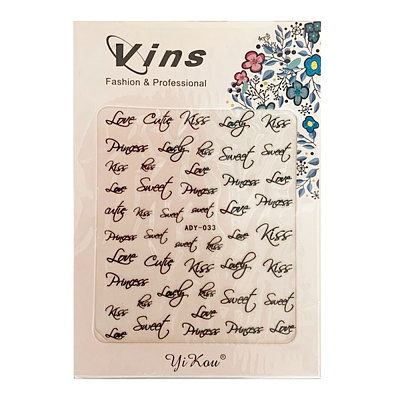 Vins
Fashion & Professional
Love Cutie Kiss Lovely Kiss
Princess Lovely kiss Sweet Sweet
Kiss kiss Love
Love Sweet Princess Love
cutie Kiss Sweet sweet Love Princess
ADY-033
Princess Sweet sweet kiss Love Kiss
Love Cutie Kiss Lovely Kiss
Princess
kiss Lovely kiss Sweet Sweet
Kiss Love
Love Sweet Princess Princess Love
YiKou®